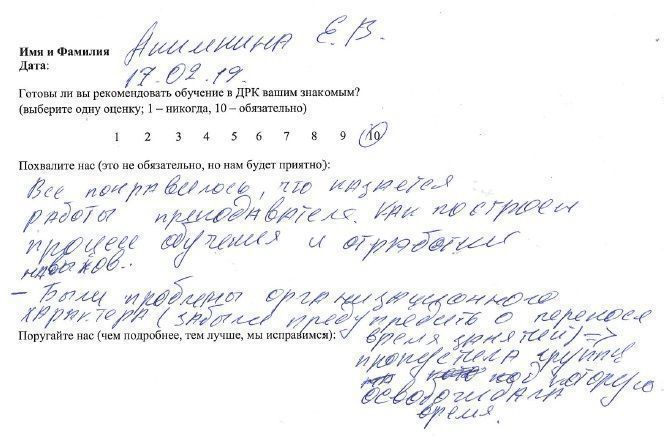 Имя и Фамилия Акимкина Е.В.
Дата: 17.02.19.
Готовы ли вы рекомендовать обучение в ДРК вашим знакомым?
(выберите одну оценку; 1 – никогда, 10 – обязательно)
1 2 3 4 5 6 7 8 9 10
Похвалите нас (это не обязательно, но нам будет приятно):
Все понравилось, что казается
работы преподавателя. Как построен
процесс обучения и отработки
навыков.
– Были проблемы организационного
характера (забыли предупредить о переносе
Поругайте нас (чем подробнее, тем лучше, мы исправим):
время занятий) =>
пропустила группу
под которую
освобождала
время.